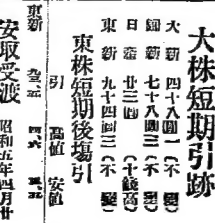 大株短期引跡
大新 四十八圓一(不變)
鐘新 七十八圓三(不變)
日產 廿三圓 (十錢高)
東新 九十四圓三(不變)
東株短期後場引
引 高値 安値
東新
安取受渡
昭和五年四月廿